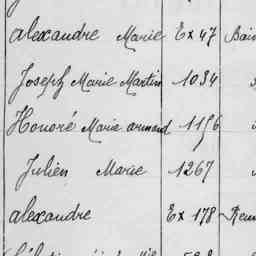 alexandre Marie Ex 47
Joseph Marie Martin 1034
Honoré Marie armand 1156
Julien Marie 1267
alexandre Ex 178